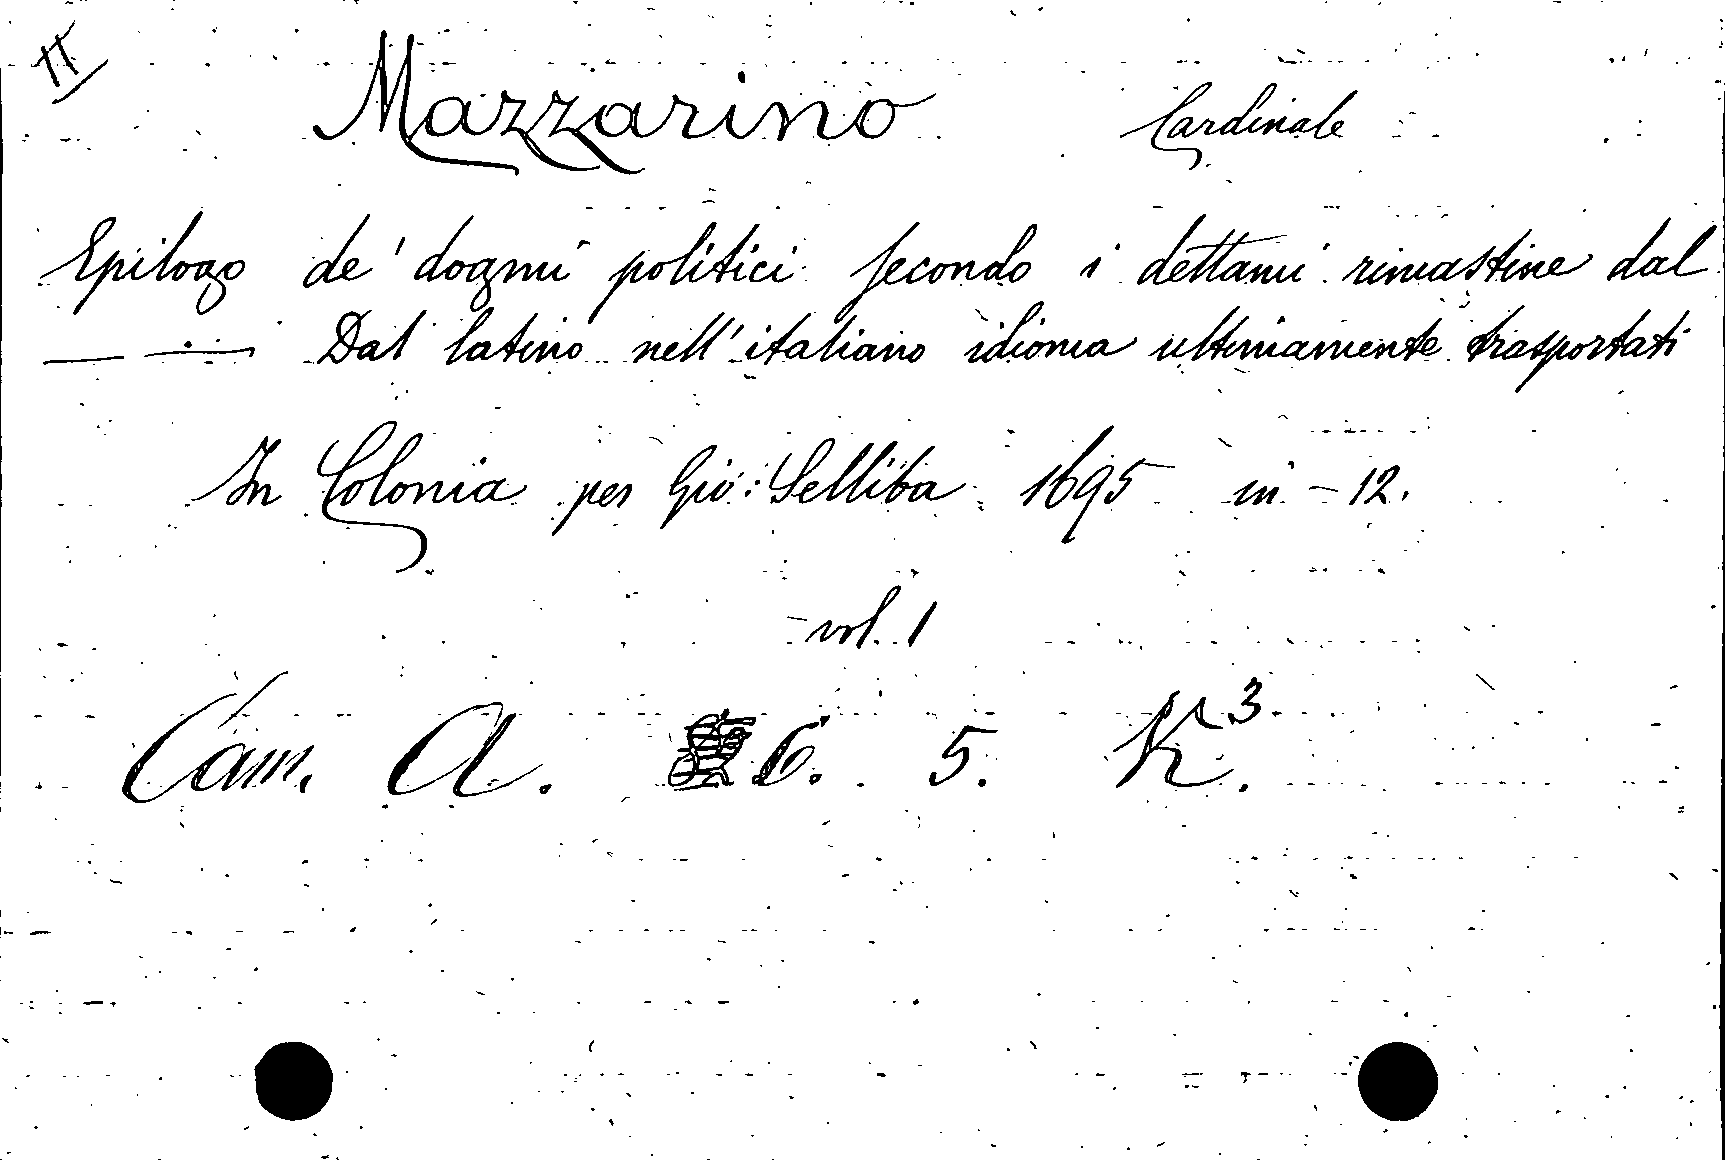 Mazzarino Cardinale
Epilogo de' dogmi politici secondo i dettami rimastine dal
— — Dal latino nell'italiano idioma ultimamente trasportati
In Colonia per Gio: Selliba 1695 in - 12.
vol. 1
Cam. A. 6. 5. K³.